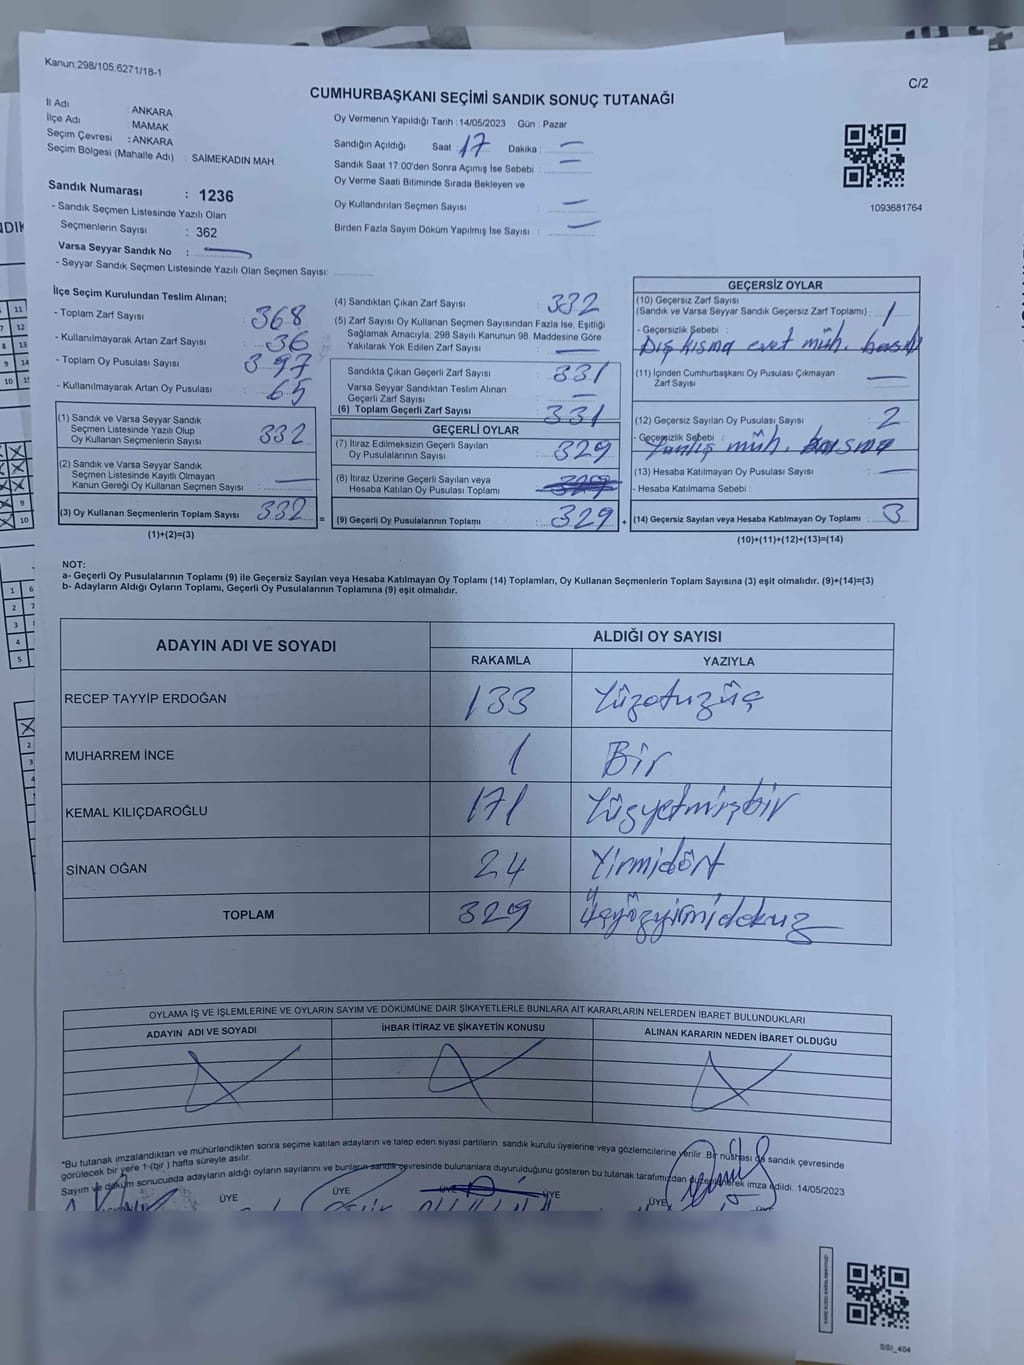 Kanun:298/105;6271/18-1
C/2
CUMHURBAŞKANI SEÇİMİ SANDIK SONUÇ TUTANAĞI
İl Adı : ANKARA
İlçe Adı : MAMAK
Seçim Çevresi : ANKARA
Seçim Bölgesi (Mahalle Adı) : SAİMEKADIN MAH.
Sandık Numarası : 1236
- Sandık Seçmen Listesinde Yazılı Olan
Seçmenlerin Sayısı : 362
Varsa Seyyar Sandık No :
- Seyyar Sandık Seçmen Listesinde Yazılı Olan Seçmen Sayısı:
Oy Vermenin Yapıldığı Tarih :14/05/2023 Gün : Pazar
Sandığın Açıldığı Saat 17 Dakika : —
Sandık Saat 17:00'den Sonra Açımış İse Sebebi : —
Oy Verme Saati Bitiminde Sırada Bekleyen ve
Oy Kullandırılan Seçmen Sayısı : —
Birden Fazla Sayım Döküm Yapılmış İse Sayısı : —
1093681764
İlçe Seçim Kurulundan Teslim Alınan;
- Toplam Zarf Sayısı : 368
- Kullanılmayarak Artan Zarf Sayısı : 36
- Toplam Oy Pusulası Sayısı : 397
- Kullanılmayarak Artan Oy Pusulası : 65
(1) Sandık ve Varsa Seyyar Sandık
Seçmen Listesinde Yazılı Olup
Oy Kullanan Seçmenlerin Sayısı : 332
(2) Sandık ve Varsa Seyyar Sandık
Seçmen Listesinde Kayıtlı Olmayan
Kanun Gereği Oy Kullanan Seçmen Sayısı : —
(3) Oy Kullanan Seçmenlerin Toplam Sayısı : 332 =
(1)+(2)=(3)
(4) Sandıktan Çıkan Zarf Sayısı : 332
(5) Zarf Sayısı Oy Kullanan Seçmen Sayısından Fazla İse, Eşitliği
Sağlamak Amacıyla; 298 Sayılı Kanunun 98. Maddesine Göre
Yakılarak Yok Edilen Zarf Sayısı : —
Sandıkta Çıkan Geçerli Zarf Sayısı : 331
Varsa Seyyar Sandıktan Teslim Alınan
Geçerli Zarf Sayısı : —
(6) Toplam Geçerli Zarf Sayısı : 331
GEÇERLİ OYLAR
(7) İtiraz Edilmeksizin Geçerli Sayılan
Oy Pusulalarının Sayısı : 329
(8) İtiraz Üzerine Geçerli Sayılan veya
Hesaba Katılan Oy Pusulası Toplamı : 329
(9) Geçerli Oy Pusulalarının Toplamı : 329 +
GEÇERSİZ OYLAR
(10) Geçersiz Zarf Sayısı
(Sandık ve Varsa Seyyar Sandık Geçersiz Zarf Toplamı) : 1
- Geçersizlik Sebebi :
Dış kısma evet müh. bası
(11) İçinden Cumhurbaşkanı Oy Pusulası Çıkmayan
Zarf Sayısı : —
(12) Geçersiz Sayılan Oy Pusulası Sayısı : 2
- Geçersizlik Sebebi :
Yanlış müh. basma
(13) Hesaba Katılmayan Oy Pusulası Sayısı : —
- Hesaba Katılmama Sebebi :
(14) Geçersiz Sayılan veya Hesaba Katılmayan Oy Toplamı : 3
(10)+(11)+(12)+(13)=(14)
NOT:
a- Geçerli Oy Pusulalarının Toplamı (9) ile Geçersiz Sayılan veya Hesaba Katılmayan Oy Toplamı (14) Toplamları, Oy Kullanan Seçmenlerin Toplam Sayısına (3) eşit olmalıdır. (9)+(14)=(3)
b- Adayların Aldığı Oyların Toplamı, Geçerli Oy Pusulalarının Toplamına (9) eşit olmalıdır.
ADAYIN ADI VE SOYADI ALDIĞI OY SAYISI
RAKAMLA YAZIYLA
RECEP TAYYİP ERDOĞAN 133 Yüzotuzüç
MUHARREM İNCE 1 Bir
KEMAL KILIÇDAROĞLU 171 Yüzyetmişbir
SİNAN OĞAN 24 Yirmidört
TOPLAM 329 Üçyüzyirmidokuz
OYLAMA İŞ VE İŞLEMLERİNE VE OYLARIN SAYIM VE DÖKÜMÜNE DAİR ŞİKAYETLERLE BUNLARA AİT KARARLARIN NELERDEN İBARET BULUNDUKLARI
ADAYIN ADI VE SOYADI İHBAR İTİRAZ VE ŞİKAYETİN KONUSU ALINAN KARARIN NEDEN İBARET OLDUĞU
*Bu tutanak imzalandıktan ve mühürlendikten sonra seçime katılan adayların ve talep eden siyasi partilerin sandık kurulu üyelerine veya gözlemcilerine verilir. Bir nüshası da sandık çevresinde
görülecek bir yere 1 (bir) hafta süreyle asılır.
Sayım ve döküm sonucunda adayların aldığı oyların sayılarını ve bunların sandık çevresinde bulunanlara duyurulduğunu gösteren bu tutanak tarafımızdan düzenlenerek imza edildi. 14/05/2023
ÜYE ÜYE ÜYE ÜYE ÜYE
SSI_404